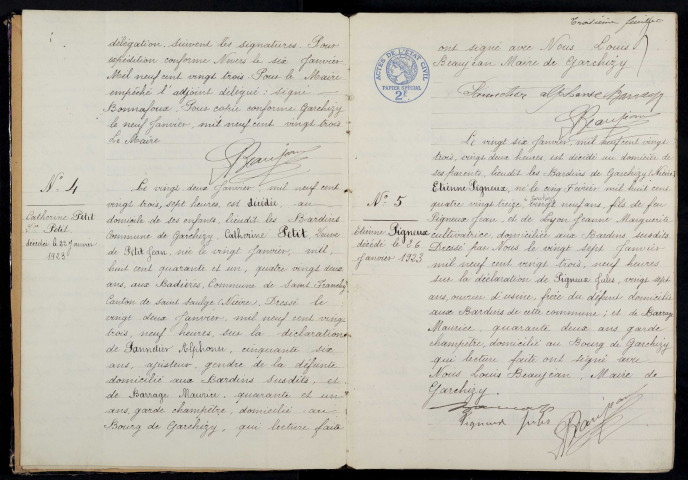 délégation. Suivent les signatures. Pour
expédition conforme Nevers le six Janvier
Mil neuf cent vingt trois. Pour le Maire
empêché l'adjoint délégué : signé
Bonnafoux. Pour copie conforme Garchizy
le neuf Janvier, mil neuf cent vingt trois
Le Maire
Beaujean
N° 4
Catherine Petit
Vve Petit
décédée le 22 Janvier
1923
Le vingt deux Janvier mil neuf cent
vingt trois, sept heures, est décédée au
domicile de ses enfants, lieudit les Bardins
Commune de Garchizy, Catherine Petit, Veuve
de Petit Jean, née le vingt Janvier, mil
huit cent quarante et un, quatre vingt deux
ans, aux Badières, Commune de Saint Franchy
Canton de Saint Saulge (Nièvre). Dressé le
vingt deux Janvier mil neuf cent vingt
trois, neuf heures, sur la déclaration
de Pannetier Alphonse, cinquante six
ans, ajusteur, gendre de la défunte
domicilié aux Bardins susdits, et
de Barrage Maurice, quarante et un
ans, garde champêtre, domicilié au
Bourg de Garchizy, qui lecture faite
Troisième feuillet
ACTES DE L'ÉTAT CIVIL
PAPIER SPÉCIAL
2f
ont signé avec Nous Louis
Beaujean Maire de Garchizy
Pannetier Alphonse
Beaujean
N° 5
Etienne Pigneux
décédé le 26
Janvier 1923
Le vingt six Janvier, mil neuf cent vingt
trois, vingt deux heures est décédé au domicile de
ses parents, lieudit les Bardins de Garchizy (Nièvre)
Etienne Pigneux, né le cinq Février mil huit cent
quatre vingt treize, à Garchizy vingt neuf ans, fils de feu
Pigneux Jean et de Leyon Jeanne Marguerite
cultivatrice, domiciliée aux Bardins susdits.
Dressé par Nous le vingt sept Janvier
mil neuf cent vingt trois, neuf heures
sur la déclaration de Pigneux Jules, vingt sept
ans, ouvrier d'usine, frère du défunt domicilié
aux Bardins de cette commune ; et de Barrage
Maurice, quarante deux ans garde
champêtre, domicilié au Bourg de Garchizy
qui lecture faite ont signé avec
Nous Louis Beaujean, Maire de
Garchizy.
Pigneux Jules
Beaujean